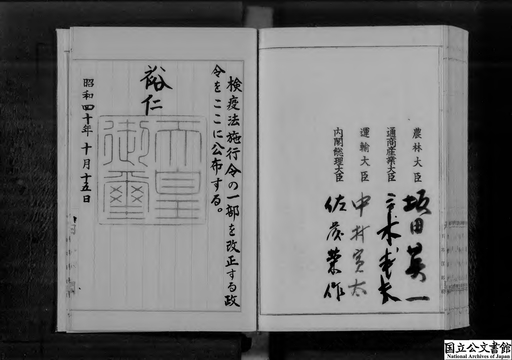 農林大臣 坂田英一
通商産業大臣 三木武夫
運輸大臣 中村寅太
内閣総理大臣 佐藤榮作
検疫法施行令の一部を改正する政
令をここに公布する。
裕仁
天皇
御璽
昭和四十年十月十五日
国立公文書館
National Archives of Japan